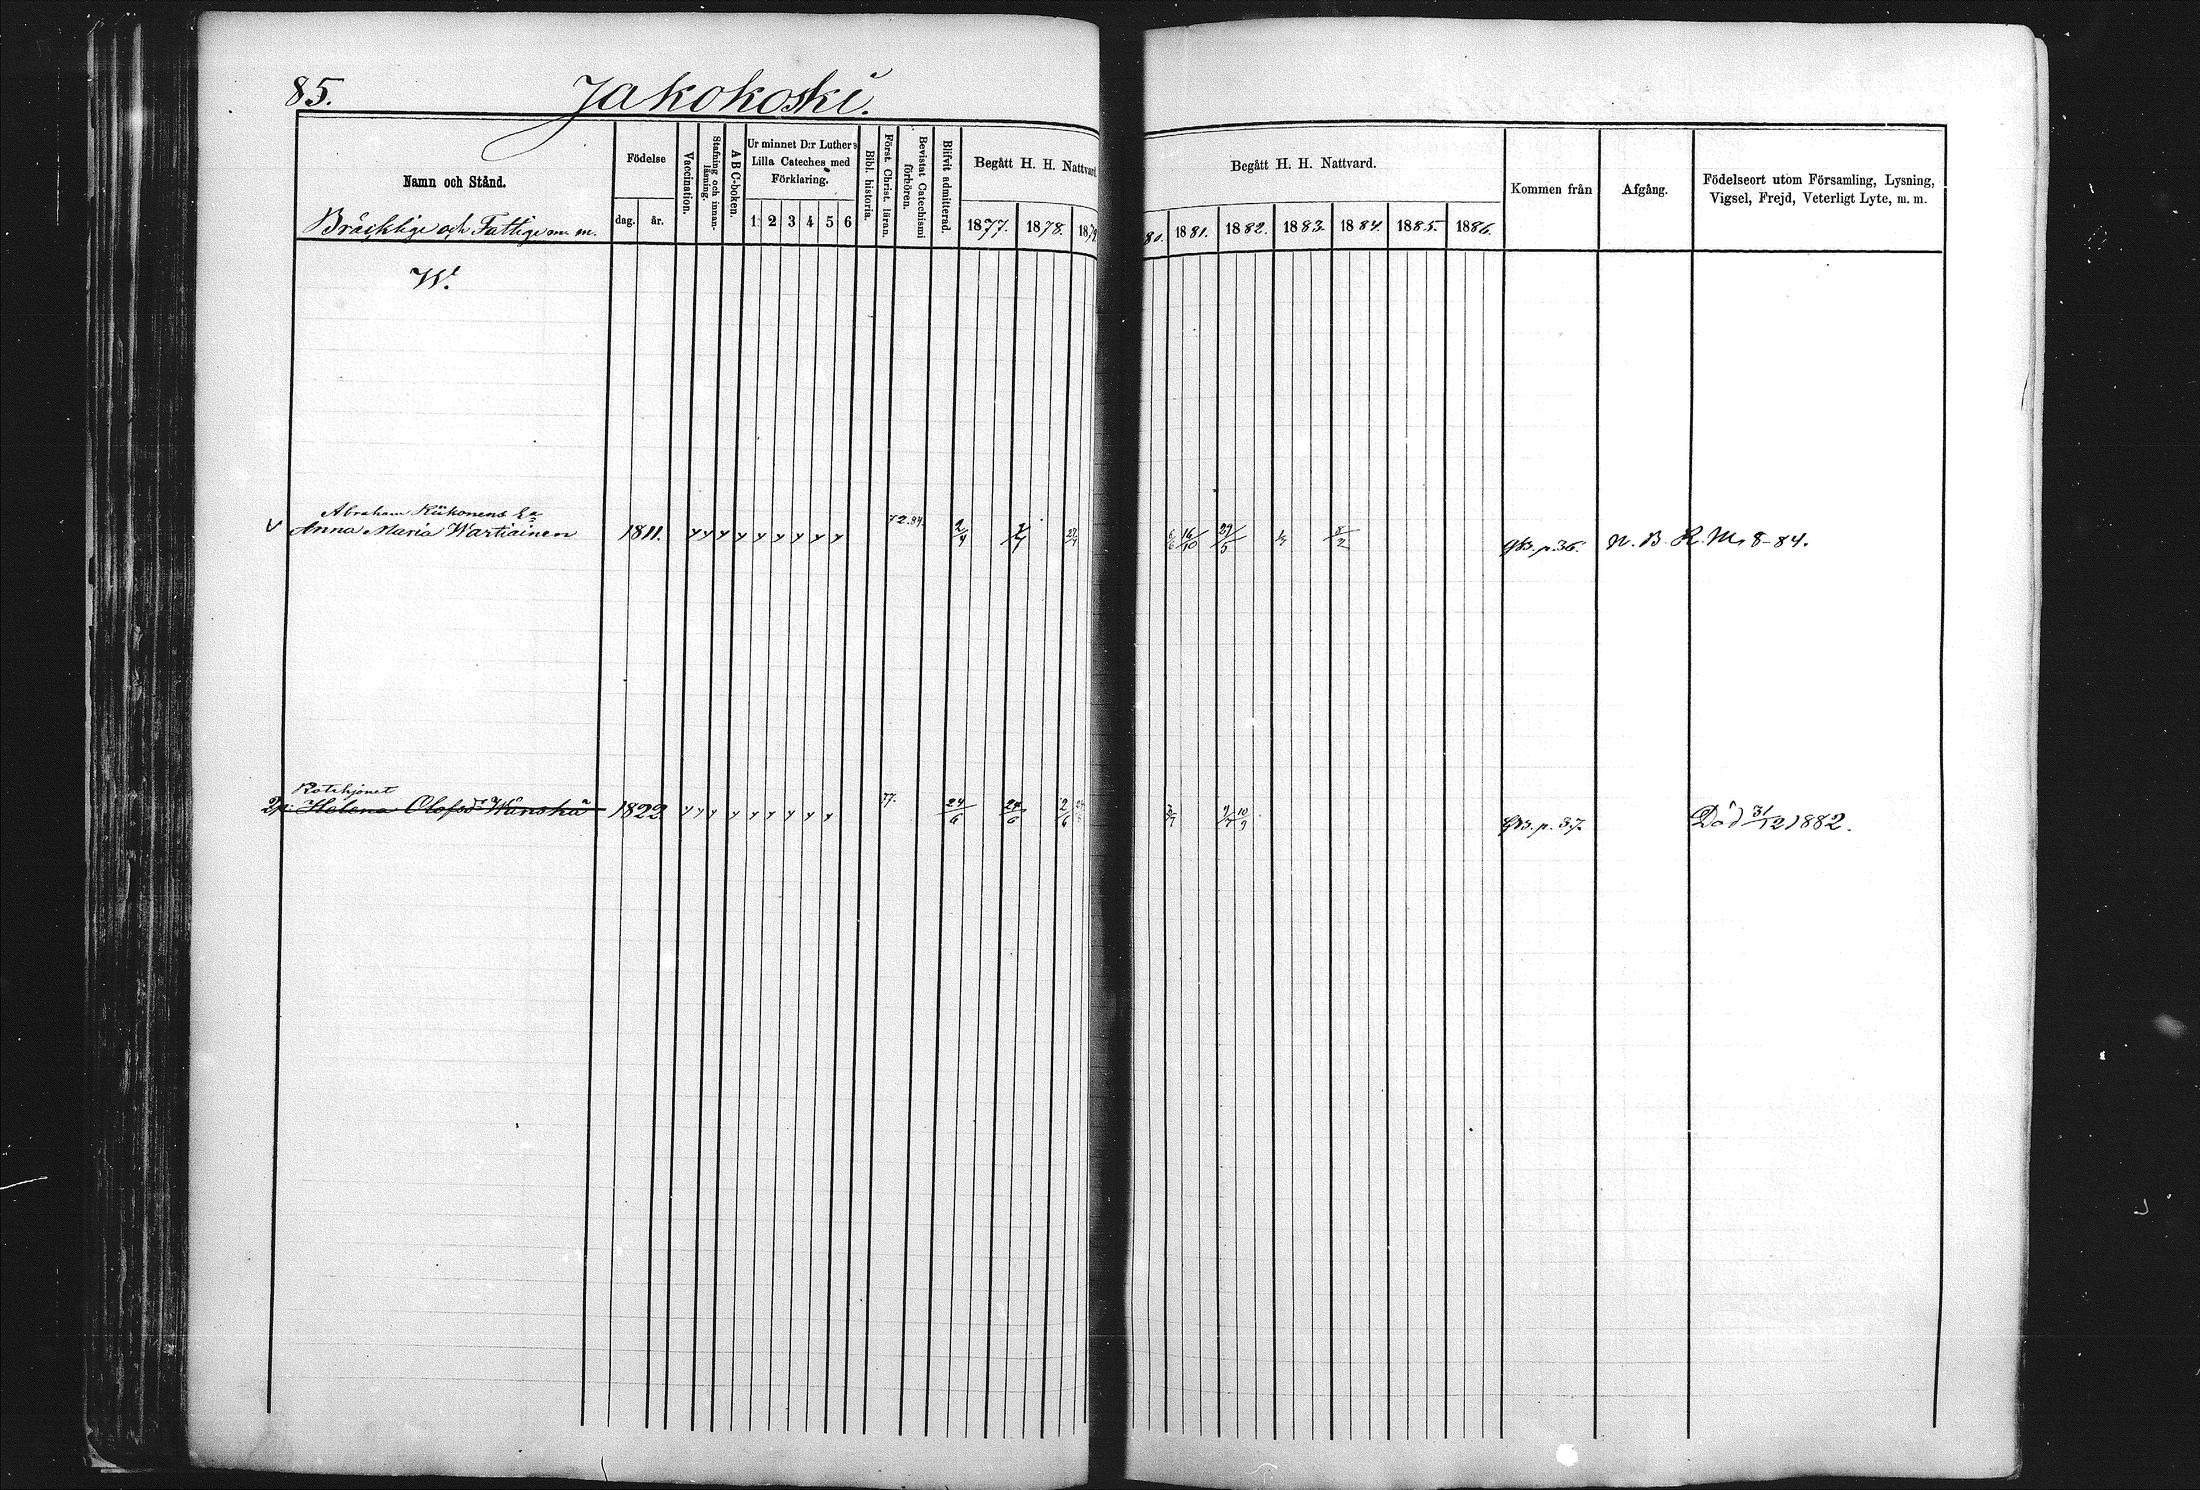 85.
Jakokoski.
Namn och Stånd.
Bräcklige och Fattige m. m.
Födelse
dag.
år.
Vaccination.
Stafning och innan-
läsning.
A B C-boken.
Ur minnet D:r Luthers
Lilla Cateches med
Förklaring.
1 2 3 4 5 6
Bibl. historia.
Först. Christ. läran.
Bevistat Catechismi
förhören.
Blifvit admitterad.
Begått H. H. Nattvard
1877. 1878. 1879
Begått H. H. Nattvard.
80. 1881. 1882. 1883. 1884. 1885. 1886.
Kommen från
Afgång.
Födelseort utom Församling, Lysning,
Vigsel, Frejd, Veterligt Lyte, m. m.
W.
Abraham Kiikonens Ea
v Anna Maria Wartiainen 1811. y y y y y y y y y 72.84. 2/4 6/6 16/10 29/5 8/2 GB. p. 36. N. B. K. M. 8-84.
Rotehjonet
Helena Olofsd:r 1822 y y y y y y y y y 77. 24/6 24/6 2/6 10/9 GB. p. 37. Död 31/12 1882.